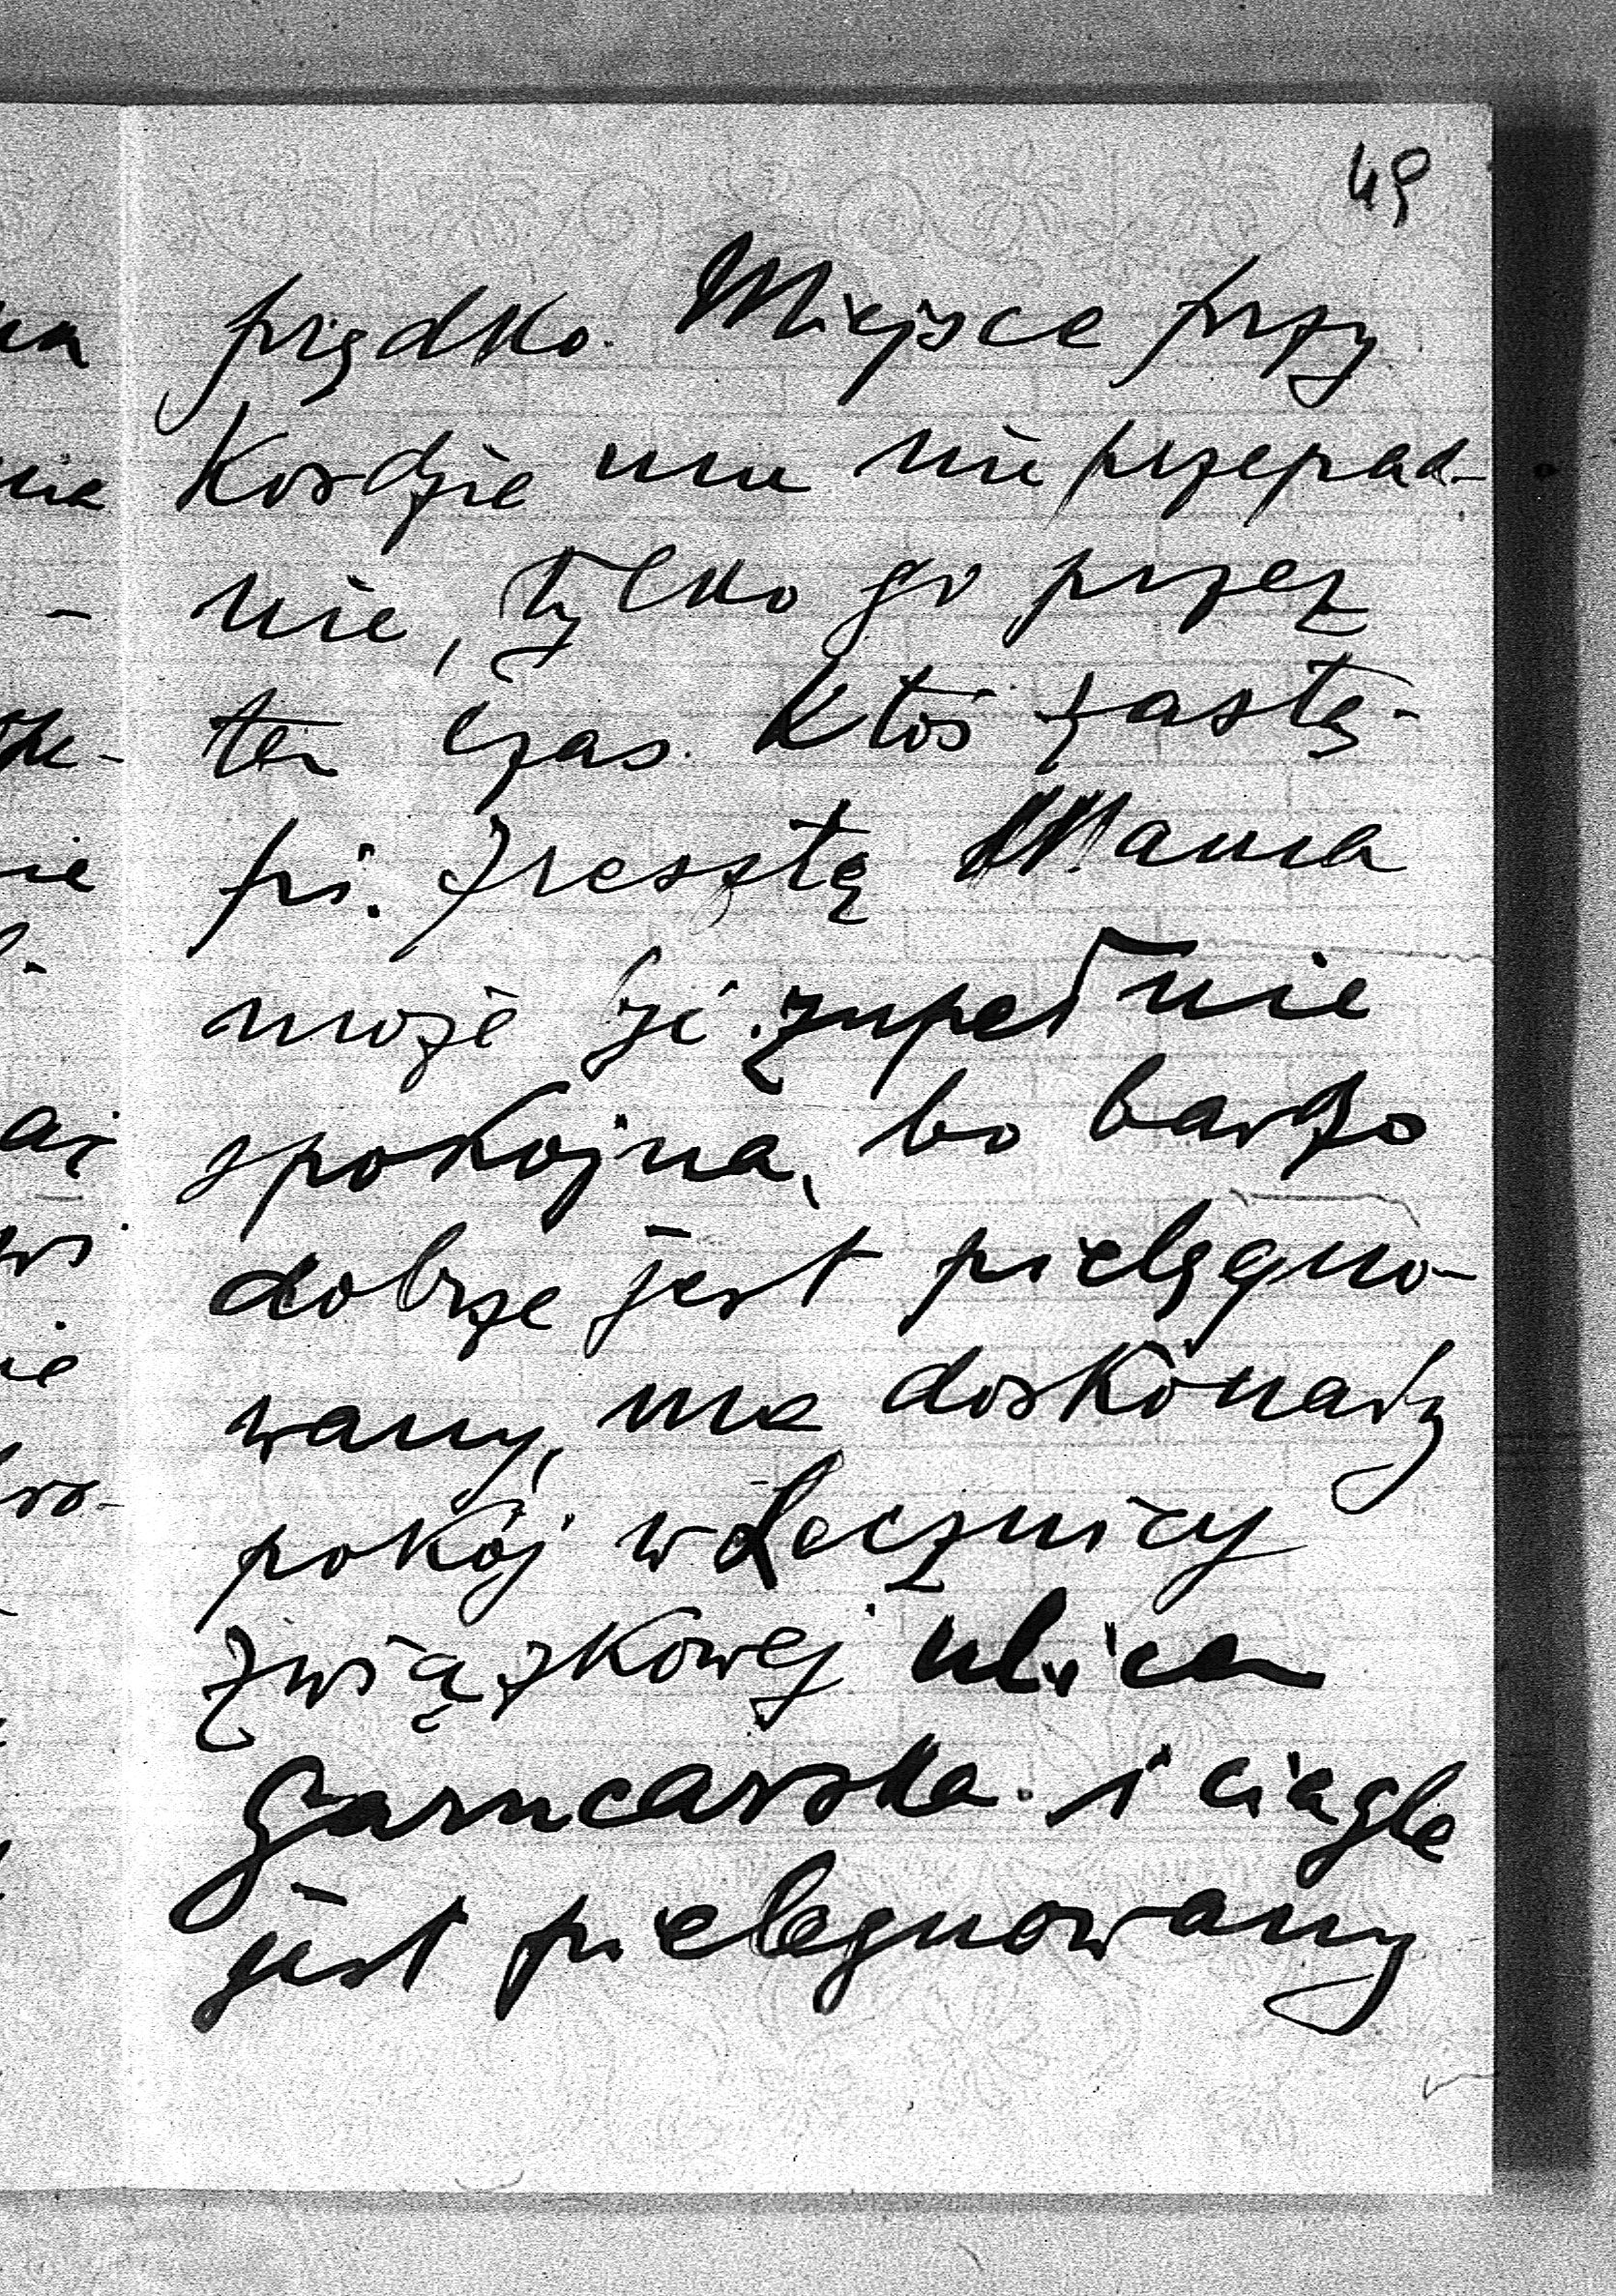 49
prędko. Miejsce przy
Kordzie mu nie przepad-
nie, tylko go przez
ten czas ktoś zastę-
pi. Zresztą Mama
może być zupełnie
spokojna, bo bardzo
dobrze jest pielęgno-
wany, ma doskonały
pokój w Lecznicy
związkowej ulica
Garncarska i ciągle
jest pielegnowany